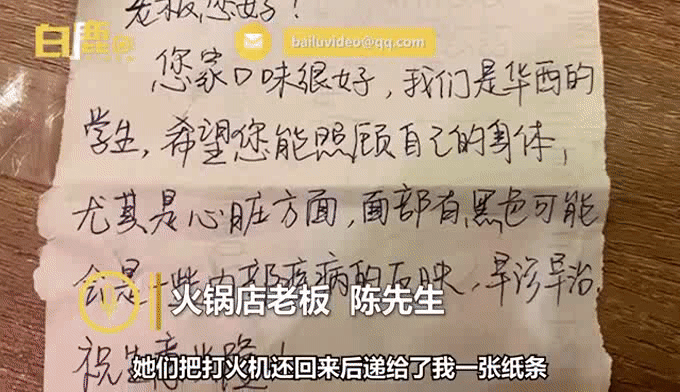 老板您好！
白鹿
bailuvideo@qq.com
您家口味很好，我们是华西的
学生，希望您能照顾自己的身体，
尤其是心脏方面，面部有黑色可能
会是一些内部疾病的反映，早诊早治，
祝生意兴隆！
火锅店老板 陈先生
她们把打火机还回来后递给了我一张纸条